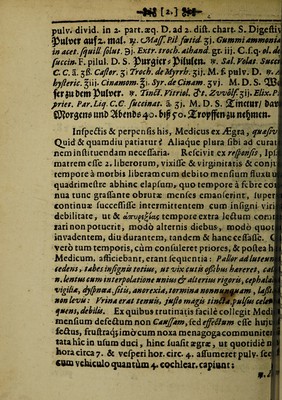 [2.]
pulv. divid. in 2. part. æq. D. ad 2. dist. chart. S. Digestiv
Pulver auf 2. mal.
in acet. squill solut. Extr. troch. alhand. gr. iij. C. f. q. ol. de
succin. F. pilul. D. S. Purgier Pilulen. Sal. Volat. Succin
C. C. Castor. Troch. de Myrrh. M. f. pulv. D.
hysteric. Cinamom. Syr. de Cinam. M. D. S.
ser zu dem Pulver. Tinct. Vitriol. Zwölf. Elix. P.
priet. Par. Liq. C. C. succinat. M. D. S. Tinctur/ davon
Morgens und Abends 40. biß 50. Tropffen zu nehmen.
Inspectis & perpensis his, Medicus ex Ægra, quasvis
Quid & quamdiu patiatur? Aliaque plura sibi ad curatio
nem instituendam necessaria. Rescivit ex responsis, Ips
matrem esse 2. liberorum, vixisse & virginitatis & conju
tempore à morbis liberam cum debito mensium fluxu us
quadrimestre abhinc elapsum, quo tempore à febre con
nua tunc grassante obrutæ menses emanserint, huper
continuæ successisse intermittentem cum insigni viri
debilitate, ut & ἀπυρεξίας tempore extra lectum conti
rari non potuerit, modò alternis diebus, modò quot
invadentem, diu durantem, tandem & hanc cessasse. C
verò tum temporis, cùm consuleret priores, & postea h
Medicum, afficiebant, erant sequentia: Pallor ad luteum
cedens, tabes insignis totius, ut vix cutis ossibus hæreret, cale
n. lentus cum interpolatione unius & alterius rigoris, cephala
vigiliæ, dyspnœa, sitis, anorexia, termina nonnunquam, lassit
non levu: Urina erat tenuis, justo magis tincta, pulsus celer
quens, debilis. Ex quibus trutinatis facilè collegit Medic
mensium defectum non Caussam, sed effectum esse huju
fectus, frustraque imò cum noxa menagoga communiter
tata hîc in usum duci, hinc suasit ægræ, ut quotidie
hora circa 7. & vesperi hor. circ. 4. assumeret pulv. seq
cum vehiculo quantùm 4. cochlear. capiunt: